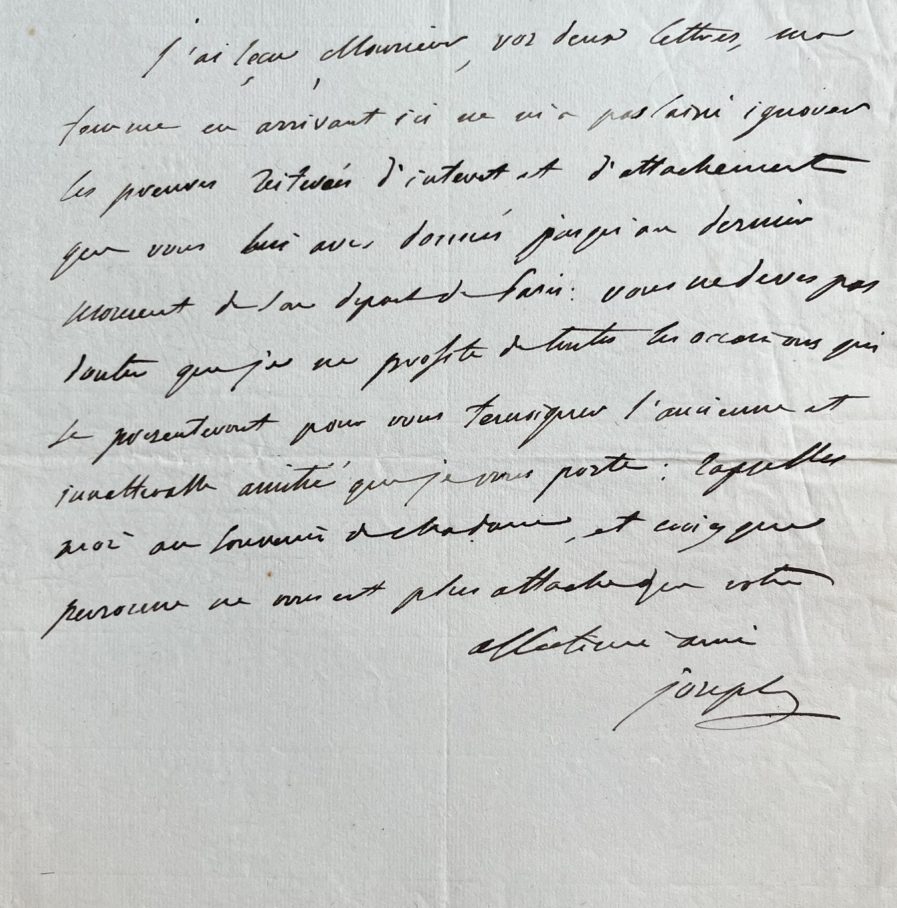 j'ai reçu Monsieur, vos deux lettres, ma
femme en arrivant ici ne m'a pas laissé ignorer
les preuves reiterées d'interet et d'attachement
que vous lui aves donnés jusqu'au dernier
moment de son depart de Paris: vous ne deves pas
douter que je ne profite de toutes les occasions qui
se presenteront pour vous temoigner l'ancienne et
inalterable amitié que je vous porte: rappelles
moi au souvenir de Madame, et croiez que
personne ne vous est plus attaché que votre
affectioné ami
joseph